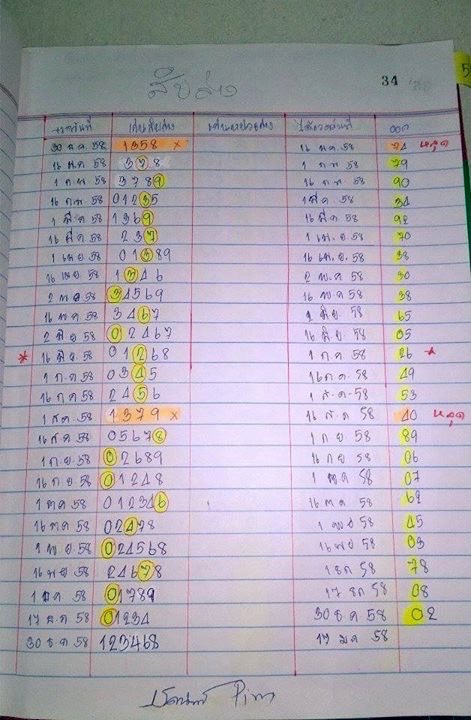 34
สิบล่าง
งวดวันที่ เลขสิบล่าง ได้งวดวันที่ ออก
30 ธ.ค. 58 1358 x 16 ม.ค. 58 74 หลุด
16 ม.ค. 58 378 1 ก.พ. 58 79
1 ก.พ. 58 3789 16 ก.พ. 58 90
16 ก.พ. 58 01235 1 มี.ค. 58 34
1 มี.ค. 58 1369 16 มี.ค. 58 92
16 มี.ค. 58 237 1 เม.ย. 58 70
1 เม.ย. 58 01389 16 เม.ย. 58 38
16 เม.ย. 58 1346 2 พ.ค. 58 30
2 พ.ค. 58 34569 16 พ.ค. 58 38
16 พ.ค. 58 3467 1 มิ.ย. 58 65
2 มิ.ย. 58 02467 16 มิ.ย. 58 05
* 16 มิ.ย. 58 01268 1 ก.ค. 58 26 *
1 ก.ค. 58 0345 16 ก.ค. 58 49
16 ก.ค. 58 2456 1 ส.ค. 58 53
1 ส.ค. 58 1379 x 16 ส.ค. 58 40 หลุด
16 ส.ค. 58 05678 1 ก.ย. 58 89
1 ก.ย. 58 02689 16 ก.ย. 58 06
16 ก.ย. 58 01248 1 ต.ค. 58 07
1 ต.ค. 58 012346 16 ต.ค. 58 62
16 ต.ค. 58 02478 1 พ.ย. 58 45
1 พ.ย. 58 024568 16 พ.ย. 58 03
16 พ.ย. 58 24678 1 ธ.ค. 58 78
1 ธ.ค. 58 01789 17 ธ.ค. 58 08
17 ธ.ค. 58 01234 30 ธ.ค. 58 02
30 ธ.ค. 58 123468 17 ม.ค. 58